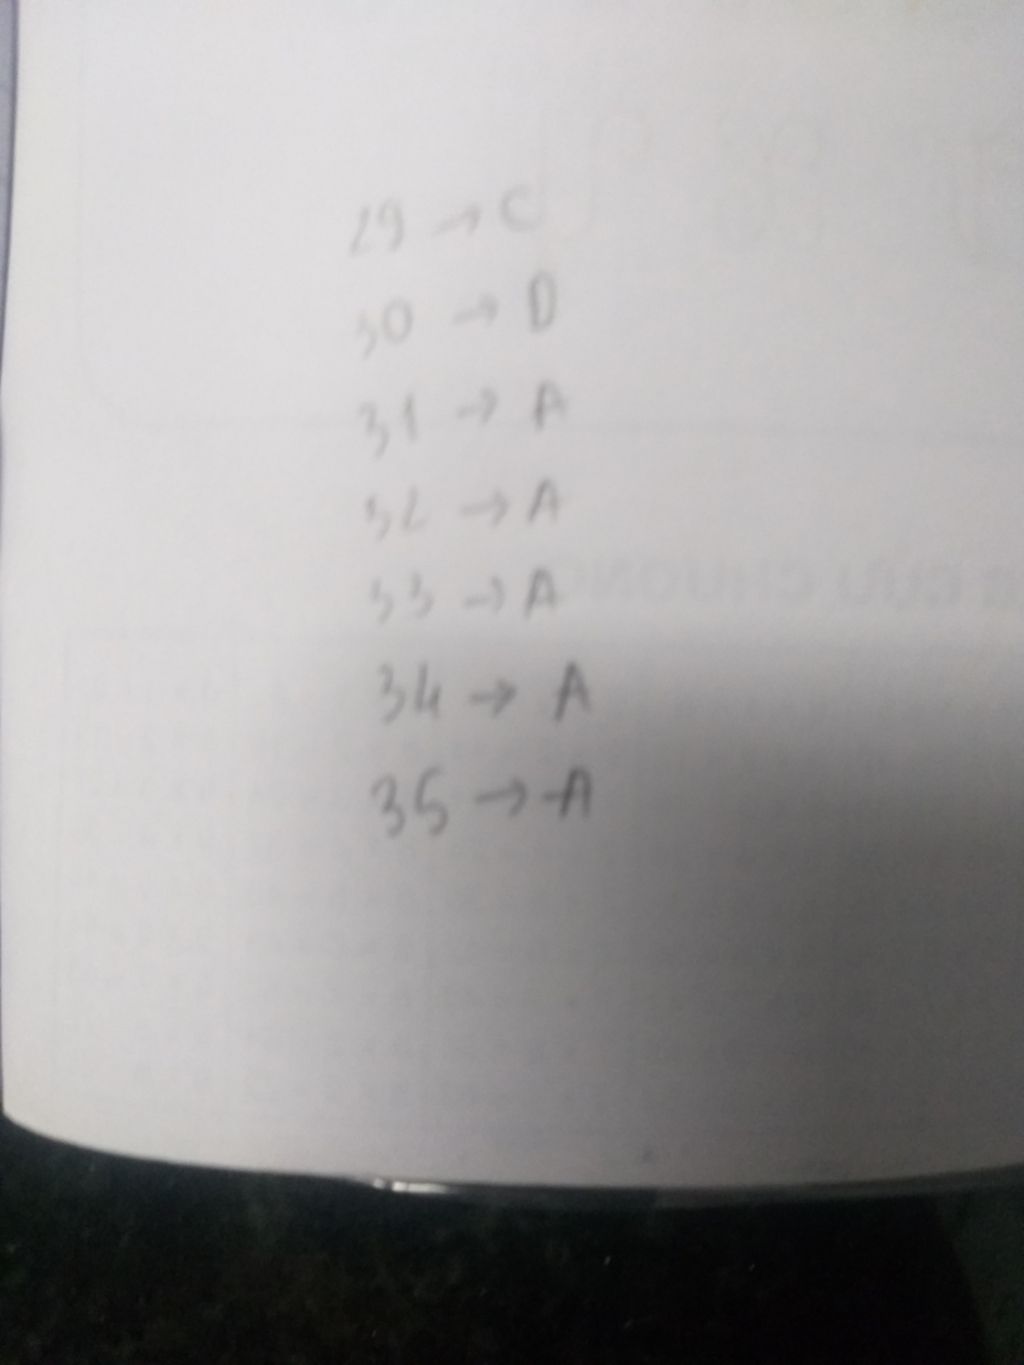 29 → C
30 → D
31 → A
32 → A
33 → A
34 → A
35 → A